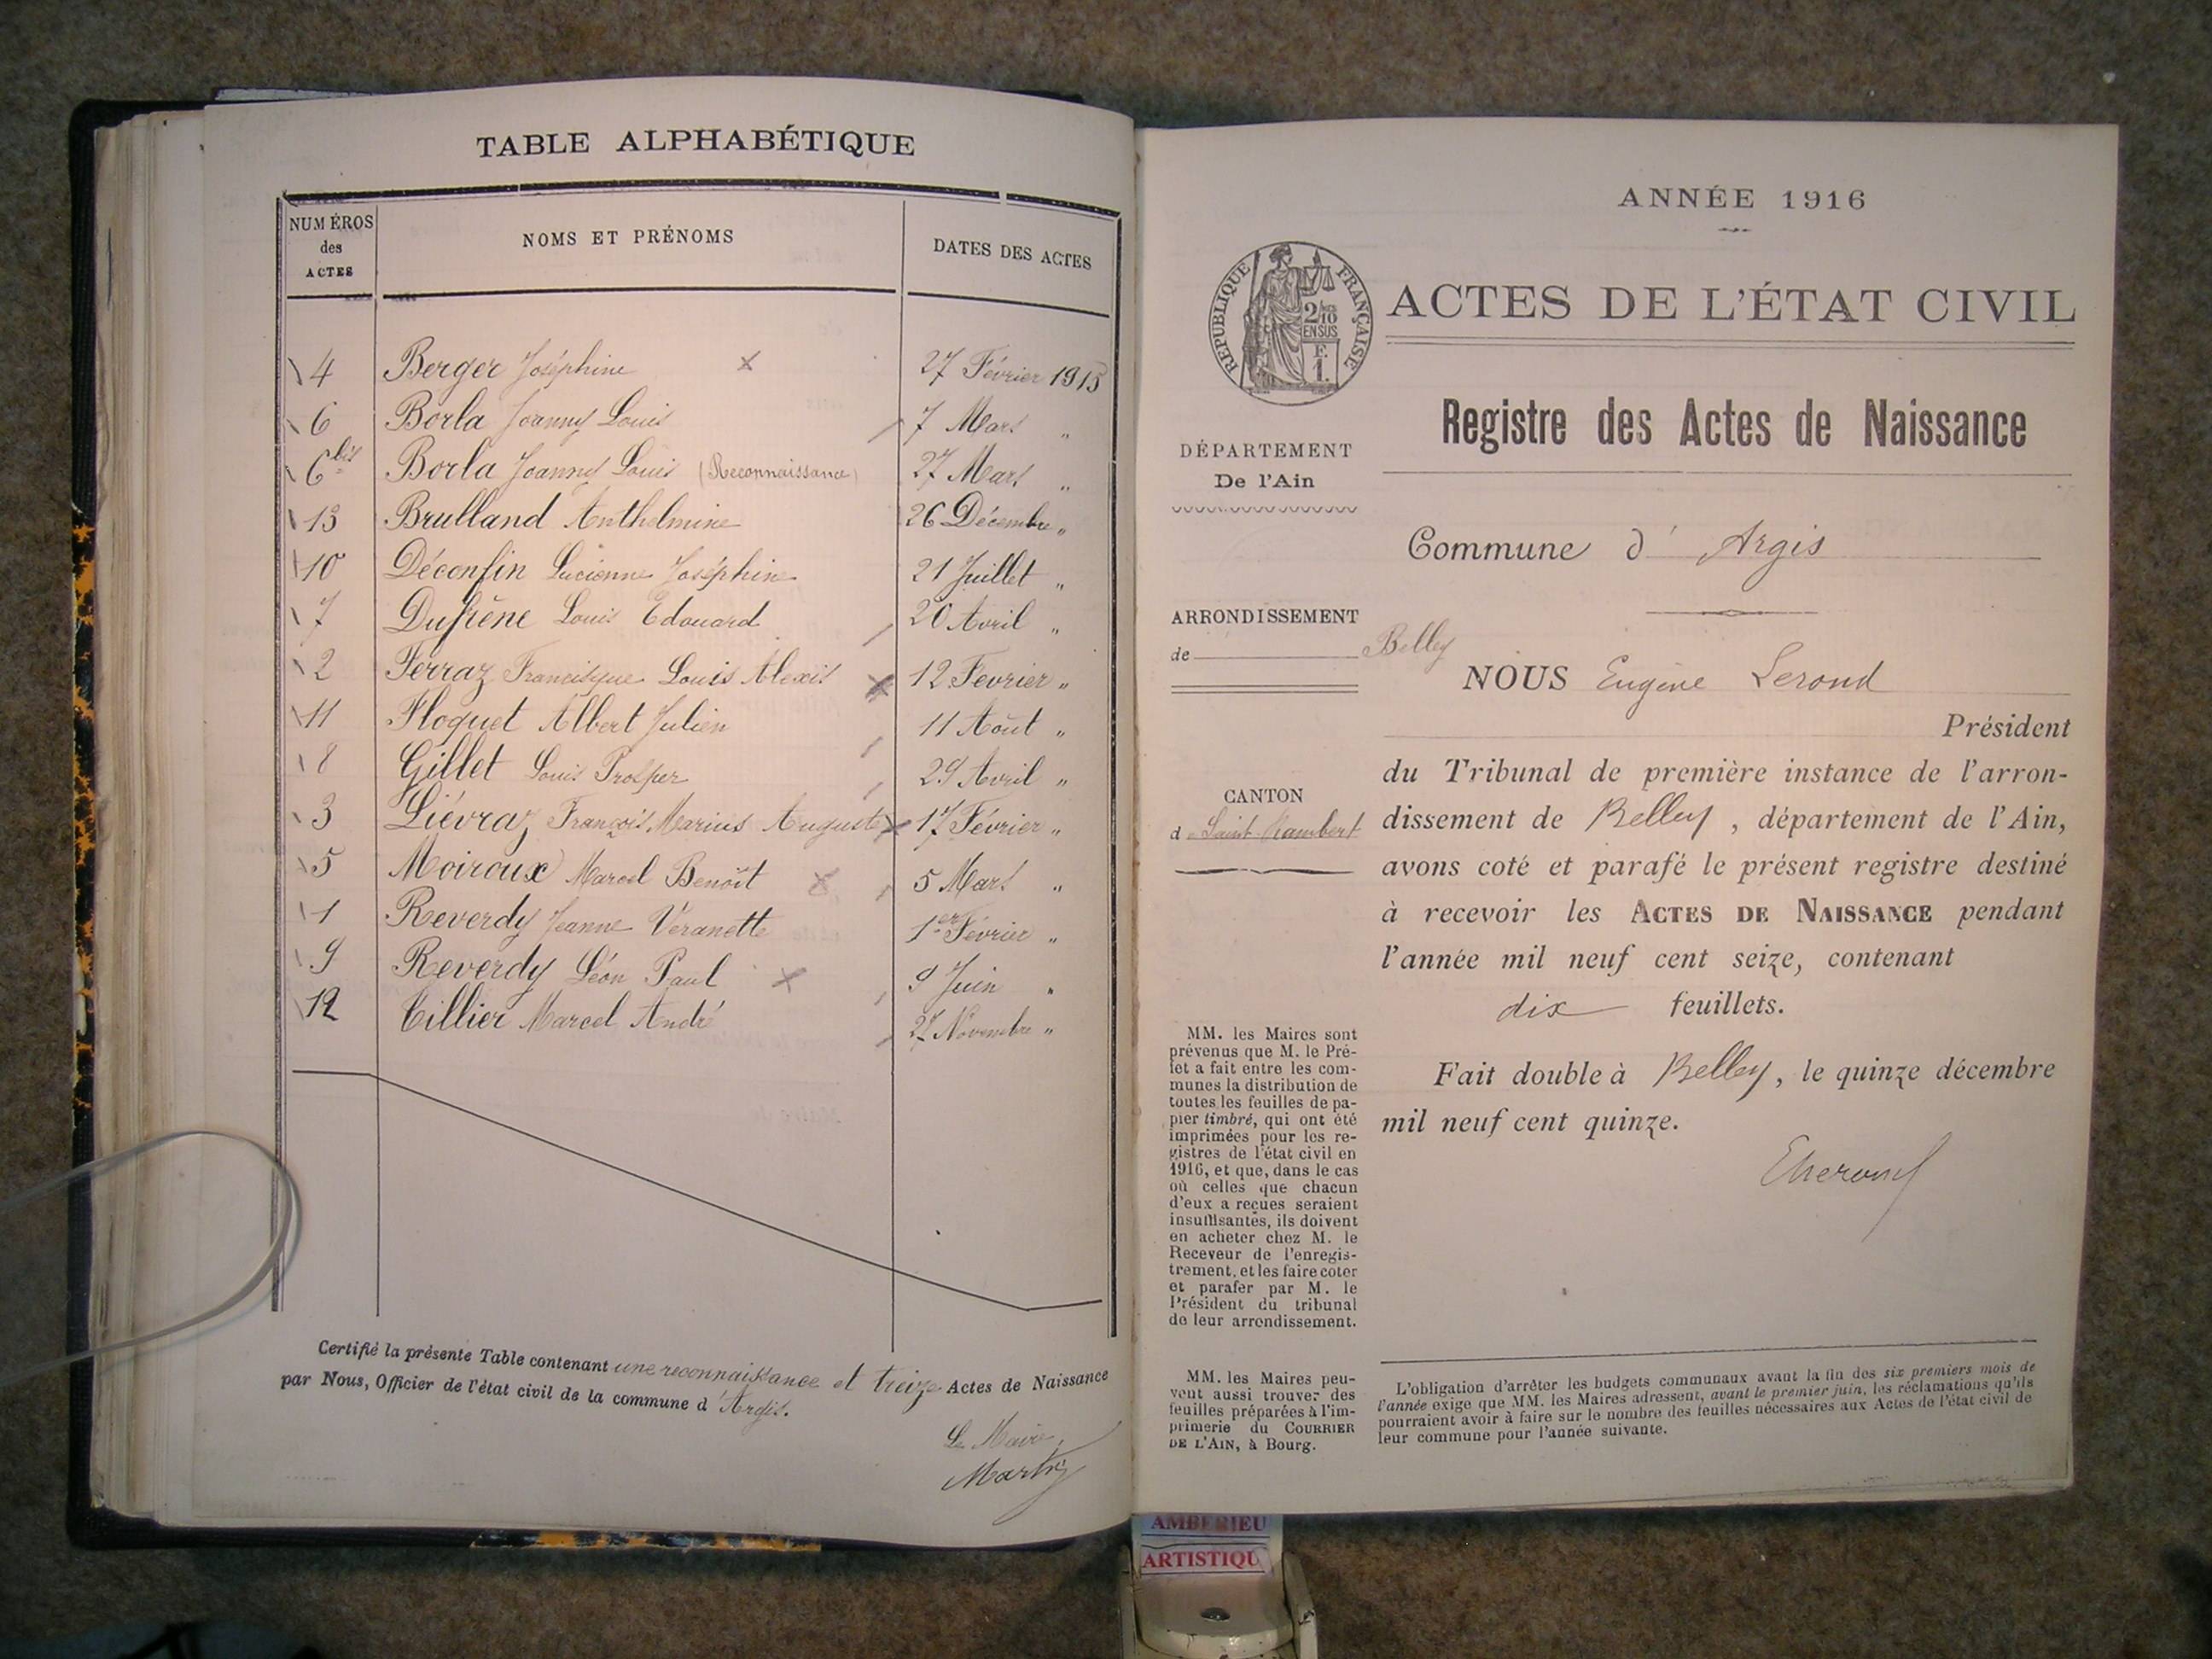 TABLE ALPHABÉTIQUE
NUMÉROS
des
ACTES
NOMS ET PRÉNOMS
DATES DES ACTES
4 Berger Joséphine 27 Février 1915
6 Borla Joanny Louis 7 Mars "
6 bis Borla Joanny Louis (Reconnaissance) 27 Mars "
13 Brulland Anthelmine 26 Décembre "
10 Déconfin Lucienne Joséphine 21 Juillet "
7 Dufrène Louis Edouard 20 Avril "
2 Ferraz Francisque Louis Alexis 12 Février "
11 Floquet Albert Julien 11 Août "
8 Gillet Louis Prosper 29 Avril "
3 Liévraz François Marius Auguste 17 Février "
5 Moiroux Marcel Benoît 5 Mars "
1 Reverdy Jeanne Véranette 1er Février "
9 Reverdy Léon Paul 9 Juin "
12 Tillier Marcel André 27 Novembre "
Certifié la présente Table contenant une reconnaissance et treize Actes de Naissance
par Nous, Officier de l'état civil de la commune d'Argis.
Le Maire,
ANNÉE 1916
RÉPUBLIQUE FRANÇAISE
2/10
EN SUS
F.
1.
ACTES DE L'ÉTAT CIVIL
Registre des Actes de Naissance
DÉPARTEMENT
De l'Ain
Commune d' Argis
ARRONDISSEMENT
de Belley
CANTON
d Saint-Rambert
NOUS Eugène Lerond
Président
du Tribunal de première instance de l'arron-
dissement de Belley, département de l'Ain,
avons coté et parafé le présent registre destiné
à recevoir les ACTES DE NAISSANCE pendant
l'année mil neuf cent seize, contenant
dix feuillets.
Fait double à Belley, le quinze décembre
mil neuf cent quinze.
MM. les Maires sont
prévenus que M. le Pré-
fet a fait entre les com-
munes la distribution de
toutes les feuilles de pa-
pier timbré, qui ont été
imprimées pour les re-
gistres de l'état civil en
1916, et que, dans le cas
où celles que chacun
d'eux a reçues seraient
insuffisantes, ils doivent
en acheter chez M. le
Receveur de l'enregis-
trement, et les faire coter
et parafer par M. le
Président du tribunal
de leur arrondissement.
MM. les Maires peu-
vent aussi trouver des
feuilles préparées à l'im-
primerie du COURRIER
DE L'AIN, à Bourg.
L'obligation d'arrêter les budgets communaux avant la fin des six premiers mois de
l'année exige que MM. les Maires adressent, avant le premier juin, les réclamations qu'ils
pourraient avoir à faire sur le nombre des feuilles nécessaires aux Actes de l'état civil de
leur commune pour l'année suivante.
AMBERIEU
ARTISTIQU